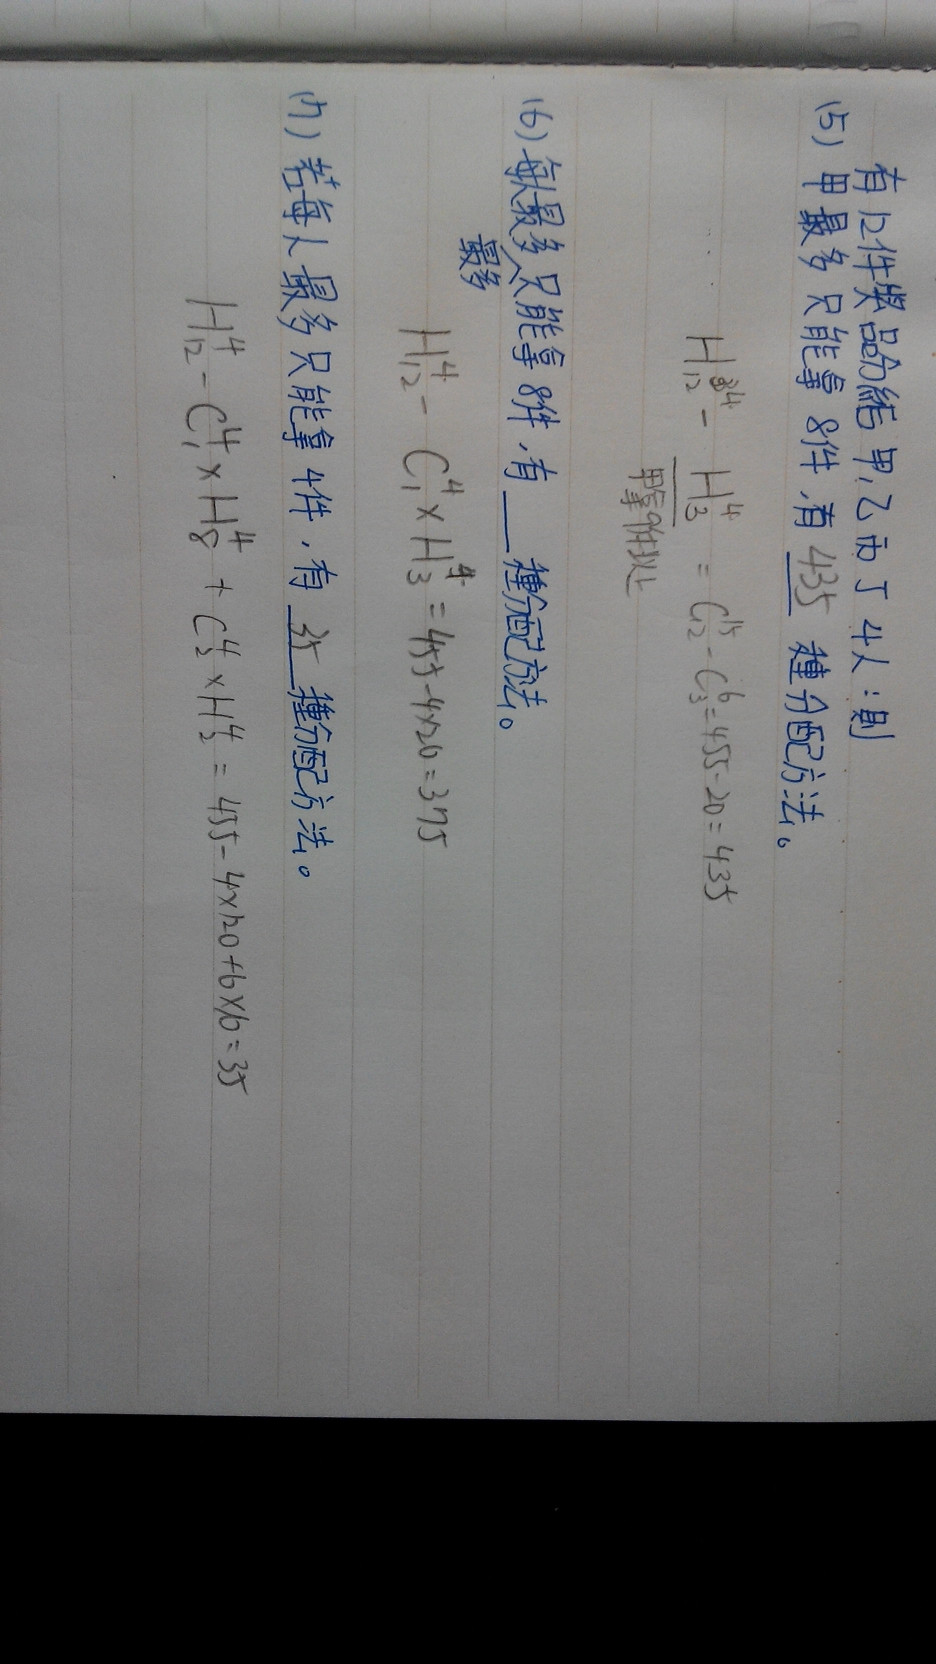 有12件獎品分給甲,乙丙丁4人:則
(5) 甲最多只能拿8件,有 435 種分配方法。
H⁴₁₂ - H⁴₃ = C¹⁵₁₂ - C⁶₃ = 455-20 = 435
甲拿9件以上
(6) 每人最多只能拿8件,有___種分配方法。
最多
H⁴₁₂ - C⁴₁ × H⁴₃ = 455-4×20 = 375
(7) 若每人最多只能拿4件,有 35 種分配方法。
H⁴₁₂ - C⁴₁ × H⁴₈ + C⁴₂ × H⁴₃ = 455-4×120+6×10 = 35